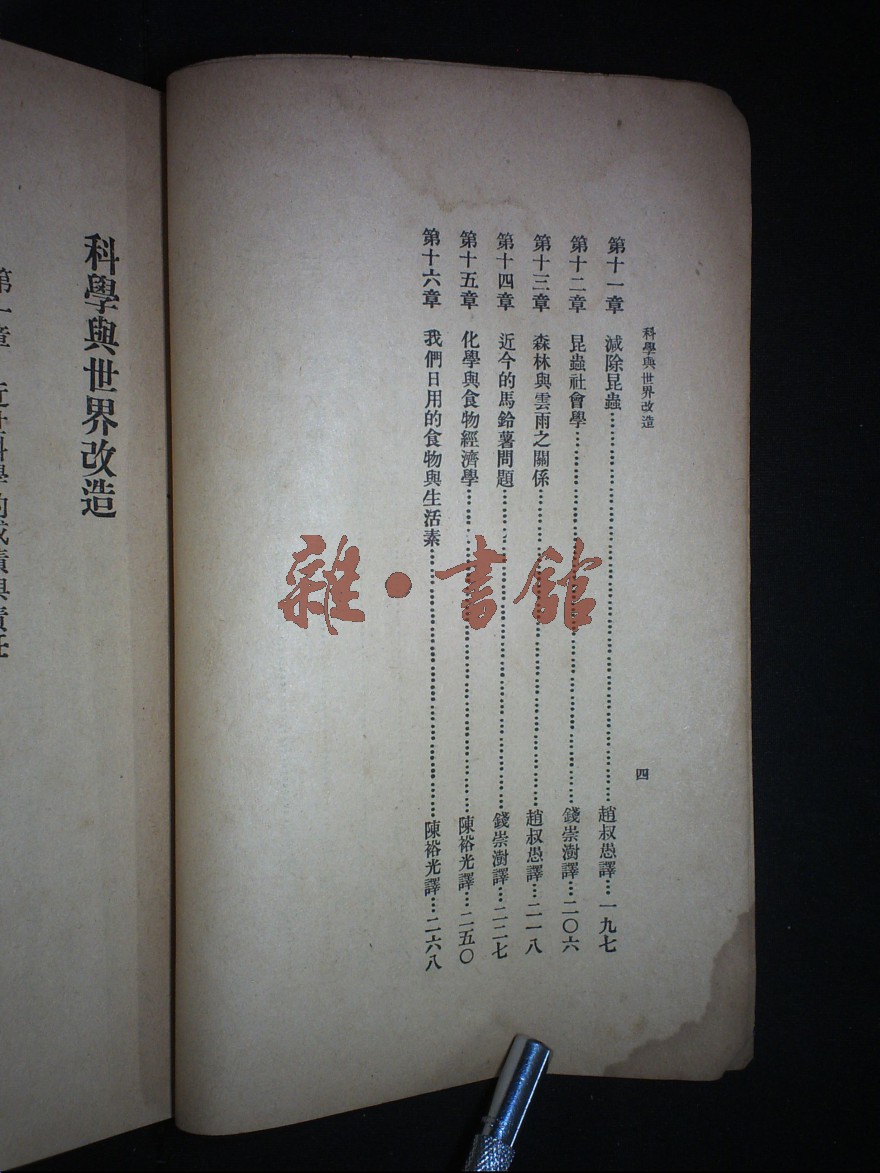 科學與世界改造
四
第十一章 減除昆蟲……趙叔愚譯…一九七
第十二章 昆蟲社會學……錢崇澍譯…二〇六
第十三章 森林與雲雨之關係……趙叔愚譯…二一八
第十四章 近今的馬鈴薯問題……錢崇澍譯…二二七
第十五章 化學與食物經濟學……陳裕光譯…二五〇
第十六章 我們日用的食物與生活素……陳裕光譯…二六八
科學與世界改造
第一章 近世科學的成績與責任
雜·書館